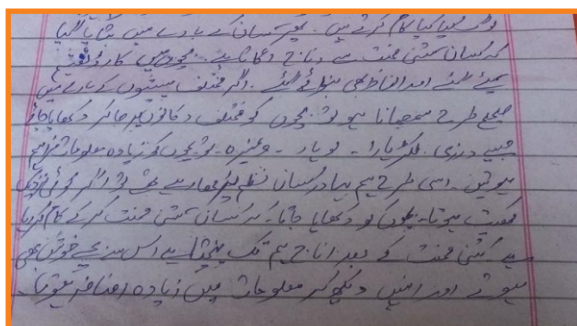 وہ کیا کیا کام کرتے ہیں۔ پھر کسان کے بارے میں بتایا گیا
کہ کسان کتنی محنت سے اناج اگاتا ہے۔ بچوں میں کارڈ تقسیم
کیئے گئے اور الفاظ بھی بنوائے گئے۔ اگر مختلف پیشوں کے بارے میں
صحیح طرح سمجھانا ہو تو بچوں کو مختلف دکانوں پر جا کر دکھایا جائے
جیسے درزی۔ لکڑہارا۔ لوہار۔ وغیرہ۔ تو بچوں کو زیادہ معلومات فراہم
ہوتیں۔ اسی طرح ہم بہادر کسان نظم پڑھا رہے تھے تو اگر کوئی نزدیک
کھیت ہوتا۔ بچوں کو دکھایا جاتا۔ کہ کسان کتنی محنت کر کے کام کر رہا
ہے کتنی محنت کے بعد اناج ہم تک پہنچتا ہے اس سے بچے خوش بھی
ہوتے اور انہیں دیکھ کر معلومات میں زیادہ اضافہ ہوتا۔